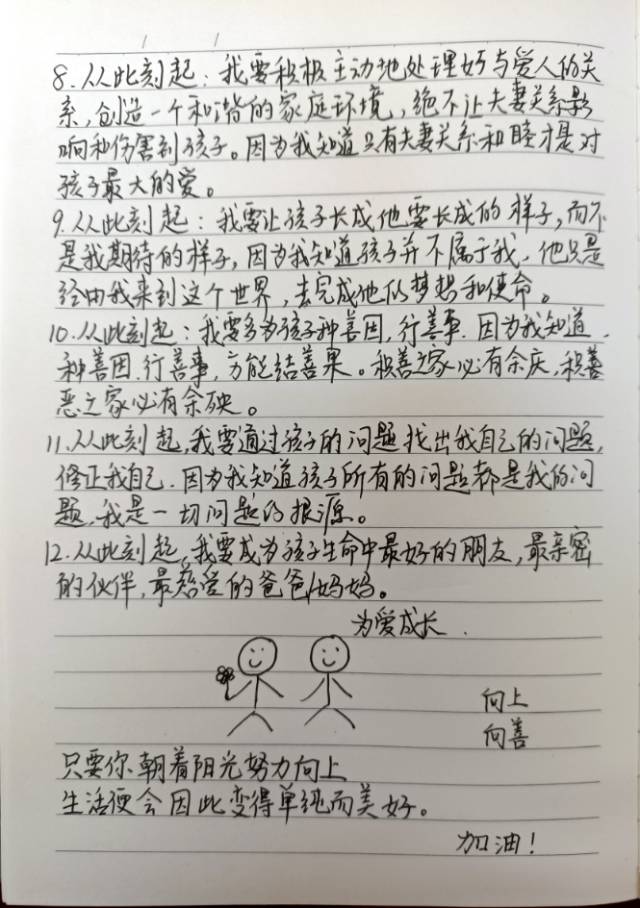 8.从此刻起：我要积极主动地处理好与爱人的关
系，创造一个和谐的家庭环境，绝不让夫妻关系影
响和伤害到孩子。因为我知道只有夫妻关系和睦才是对
孩子最大的爱。
9.从此刻起：我要让孩子长成他要长成的样子，而不
是我期待的样子，因为我知道孩子并不属于我，他只是
经由我来到这个世界，去完成他的梦想和使命。
10.从此刻起：我要多为孩子种善因，行善事，因为我知道，
种善因，行善事，方能结善果。积善之家必有余庆，积善
恶之家必有余殃。
11.从此刻起，我要通过孩子的问题找出我自己的问题，
修正我自己，因为我知道孩子所有的问题都是我的问
题，我是一切问题的根源。
12.从此刻起，我要成为孩子生命中最好的朋友，最亲密
的伙伴，最慈爱的爸爸/妈妈。
为爱成长.
向上
向善
只要你朝着阳光努力向上
生活便会因此变得单纯而美好。
加油！